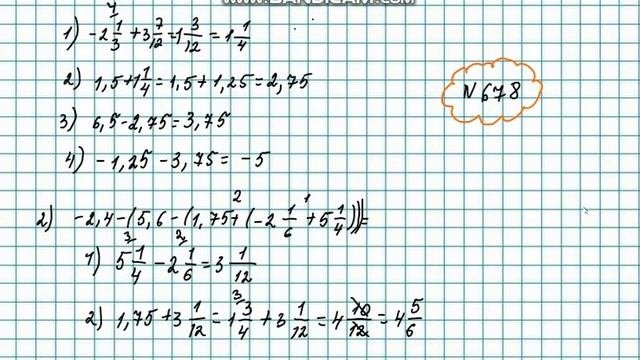 WWW.BANDICAM.COM
1) -2 1/3 + 3 7/12 = 1 3/12 = 1 1/4
2) 1,5+1 1/4 = 1,5+1,25=2,75
N 678
3) 6,5-2,75=3,75
4) -1,25-3,75=-5
2) -2,4-(5,6-(1,75+(-2 1/6+5 1/4)))=
1) 5 1/4 - 2 1/6 = 3 1/12
2) 1,75+3 1/12 = 1 3/4 + 3 1/12 = 4 10/12 = 4 5/6